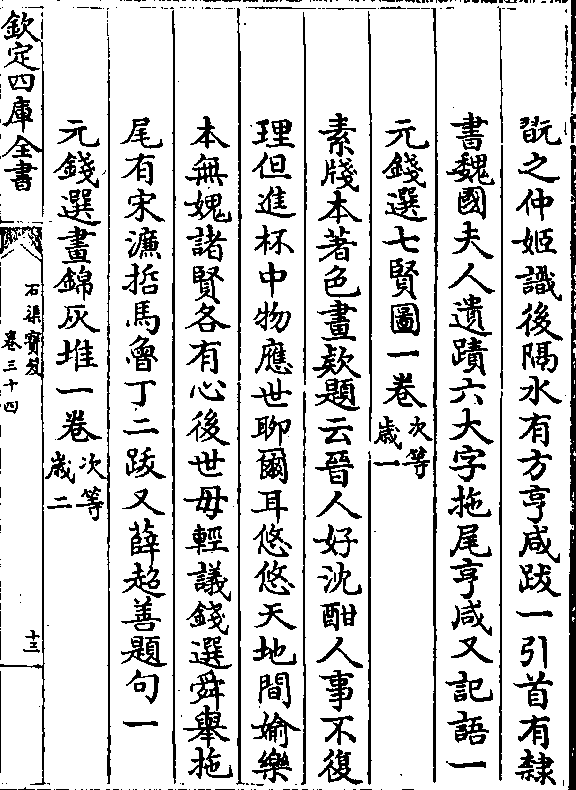 翫之仲姬識後隔水有方亨咸跋一引首有隸
書魏國夫人遺蹟六大字拖尾亨咸又記語一
元錢選七賢圖一卷次等歲一
素牋本著色畫款題云晉人好沈酣人事不復
理但進杯中物應世聊爾耳悠悠天地間媮樂
本無媿諸賢各有心後世毋輕議錢選舜舉拖
尾有宋濂哲馬魯丁二跋又薛超善題句一
元錢選畫錦灰堆一卷次等歲二
欽定四庫全書
石渠寶笈
卷三十四
十三